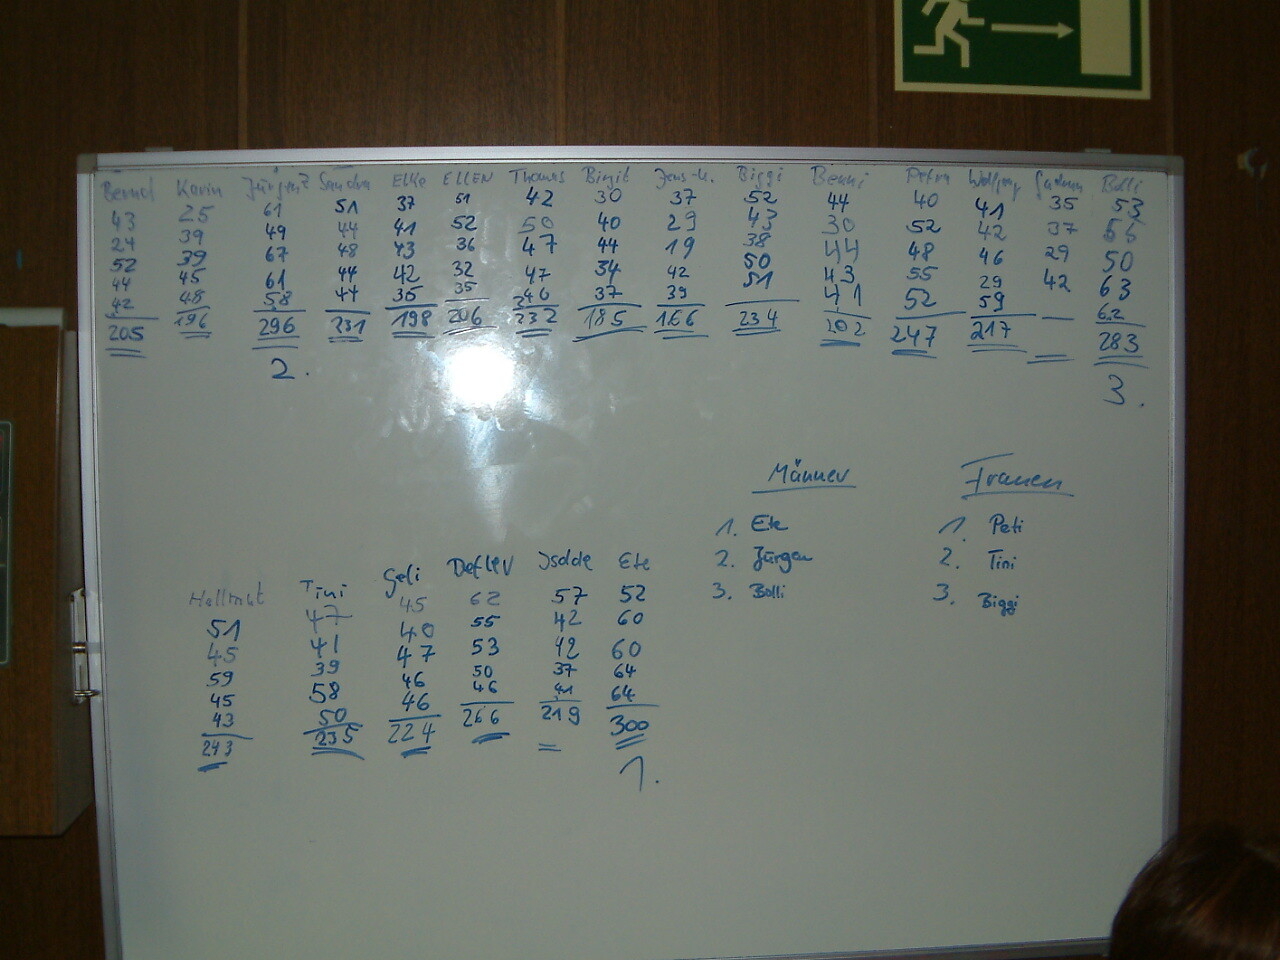 Bernd Karin Jürgen Sandra Elke ELLEN Thomas Birgit Jens-U. Biggi Benni Petra Wolfgang Bolli
43 25 61 51 37 51 42 30 37 52 44 40 41 35 53
24 39 49 44 41 52 50 40 29 43 30 52 42 37 55
52 39 67 48 43 36 47 44 19 38 44 48 46 29 50
44 45 61 44 42 32 47 34 42 50 43 55 29 42 63
42 48 58 44 35 35 46 37 39 51 41 52 59 62
205 196 296 231 198 206 232 185 166 234 202 247 217 283
2. 3.
Männer Frauen
1. Ete 1. Peti
2. Jürgen 2. Tini
3. Bolli 3. Biggi
Hellmut Tini Geli Detlev Isolde Ete
51 47 45 62 57 52
45 41 40 55 42 60
59 39 47 53 42 60
45 58 46 50 37 64
43 50 46 46 41 64
243 235 224 266 219 300
1.